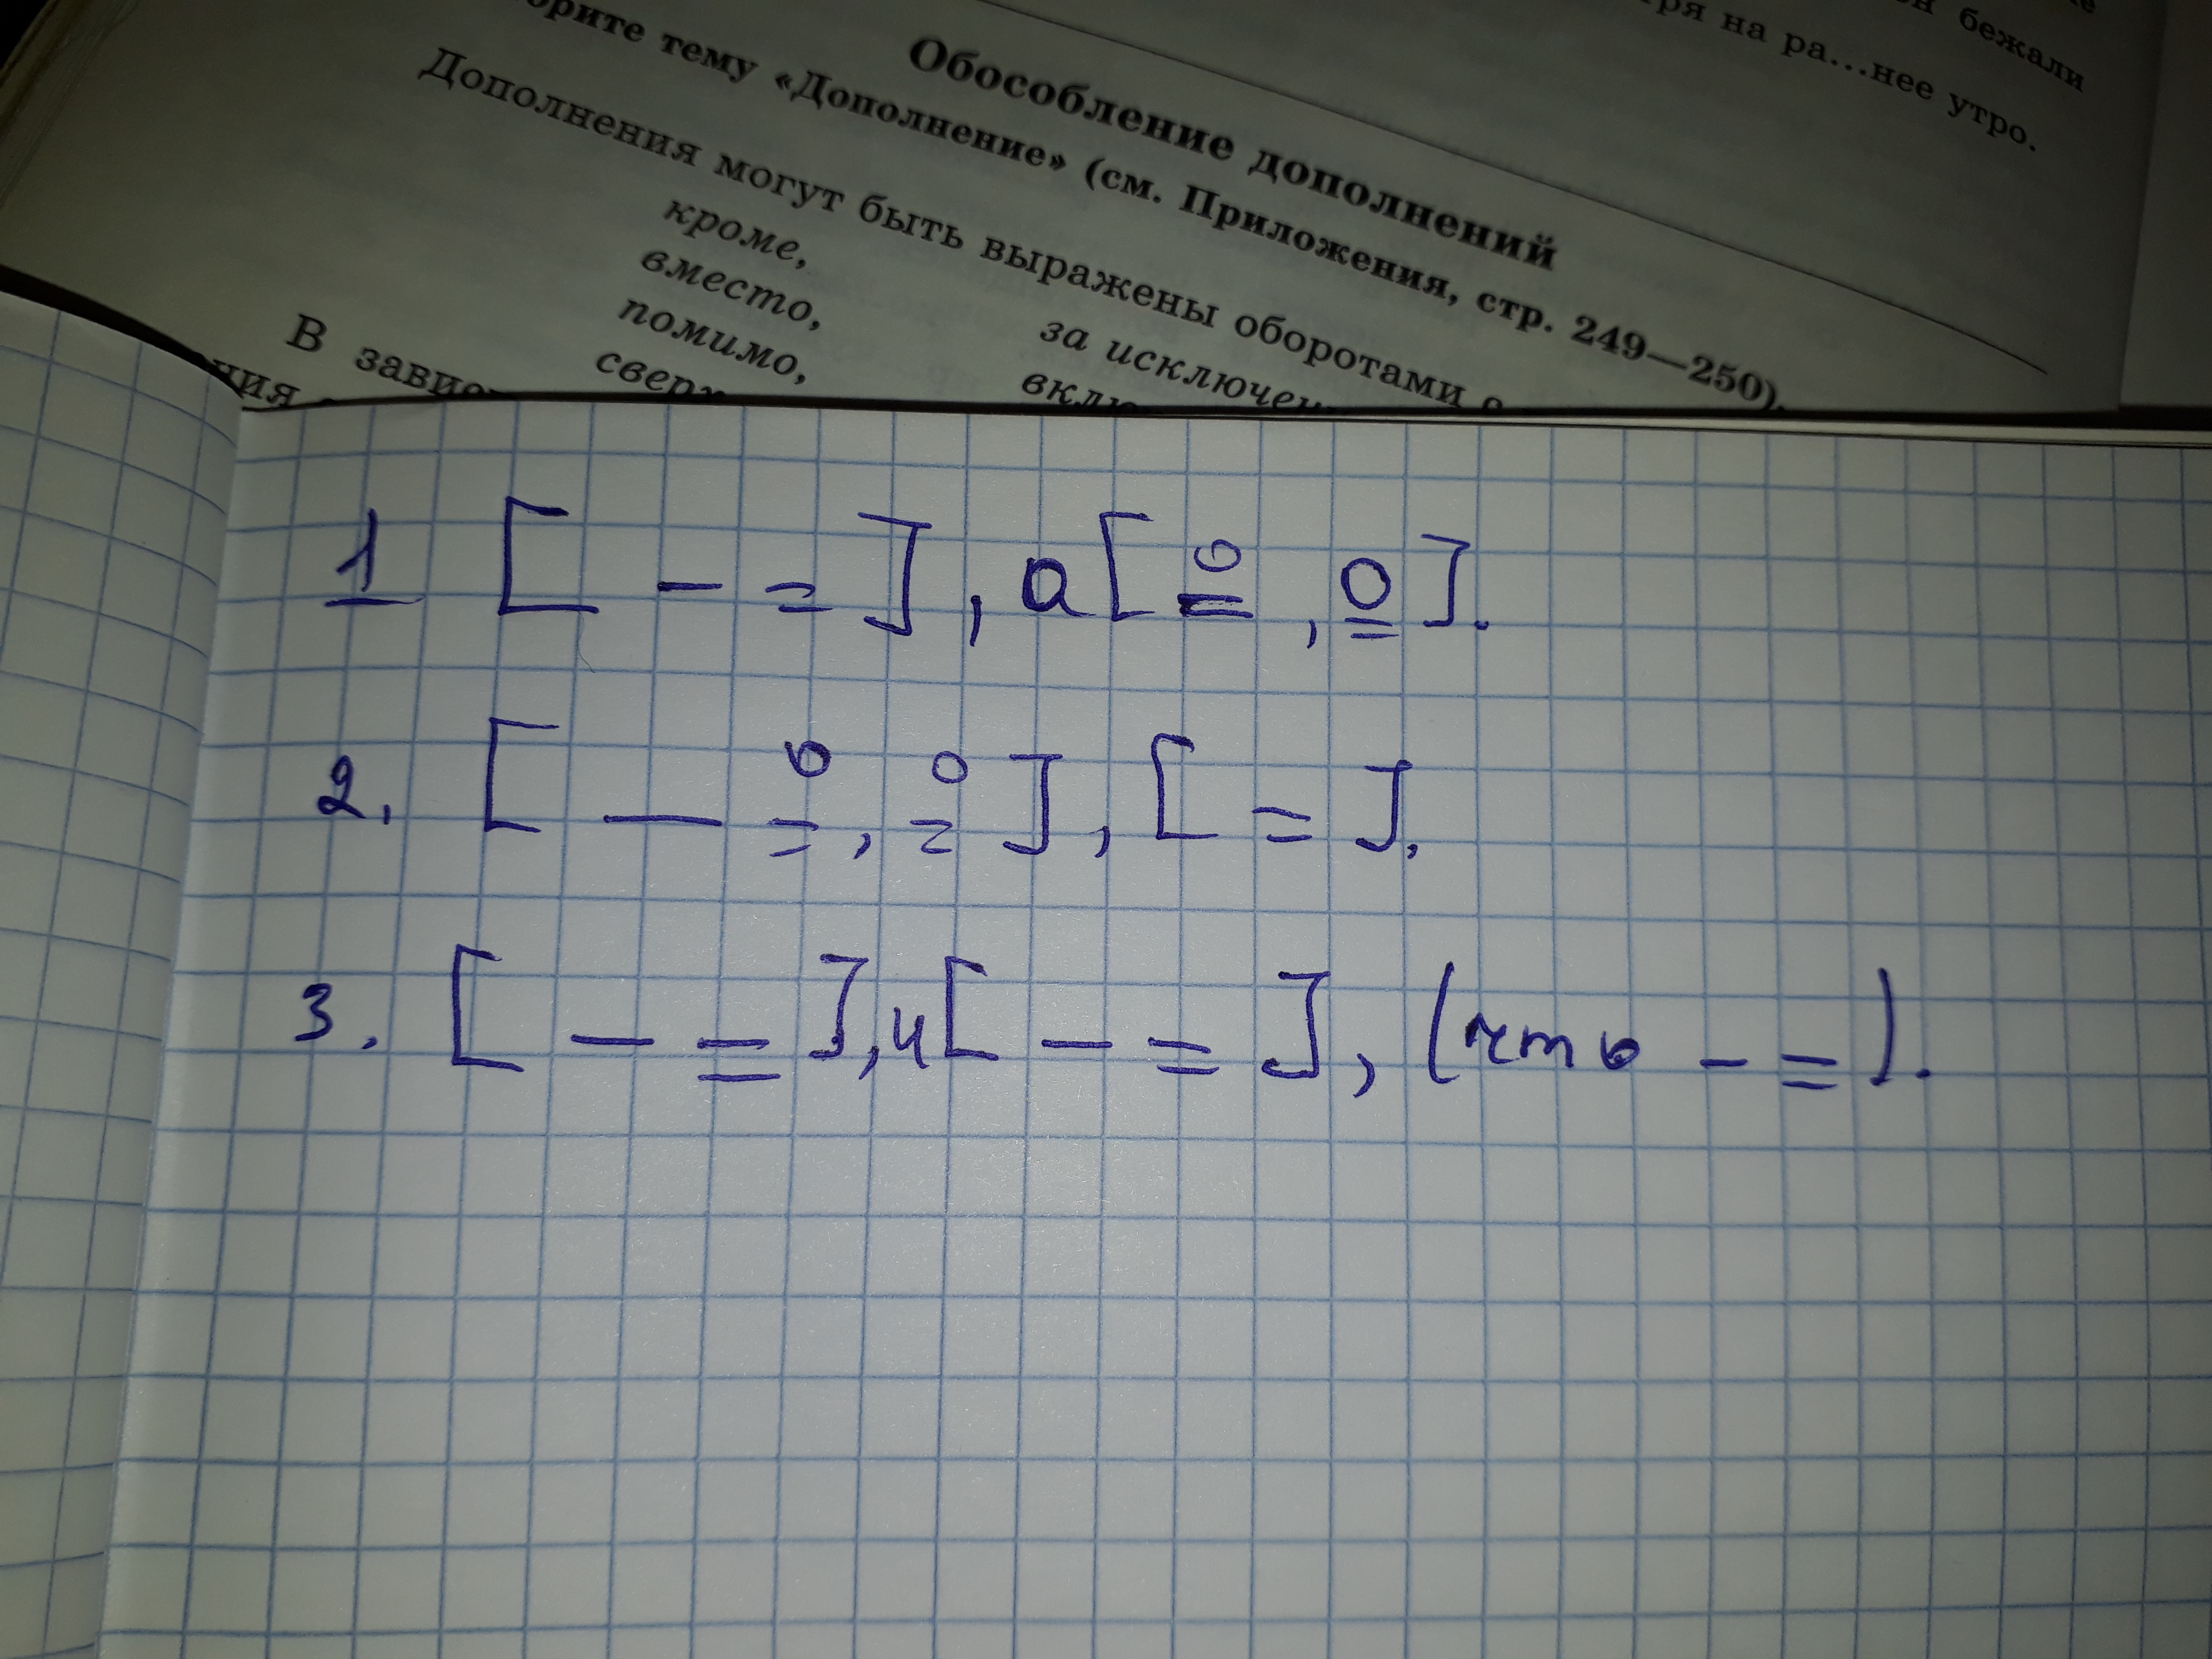 бежали
ря на ра...нее утро.
Обособление дополнений
орите тему «Дополнение» (см. Приложения, стр. 249—250).
Дополнения могут быть выражены оборотами
кроме,
вместо,
за исключен
помимо,
вклю
сверх
В завис
ния
1 [ – = ], а [ = , = ].
2. [ — = , = ], [ = ].
3. [ – = ], и [ – = ], (что – = ).